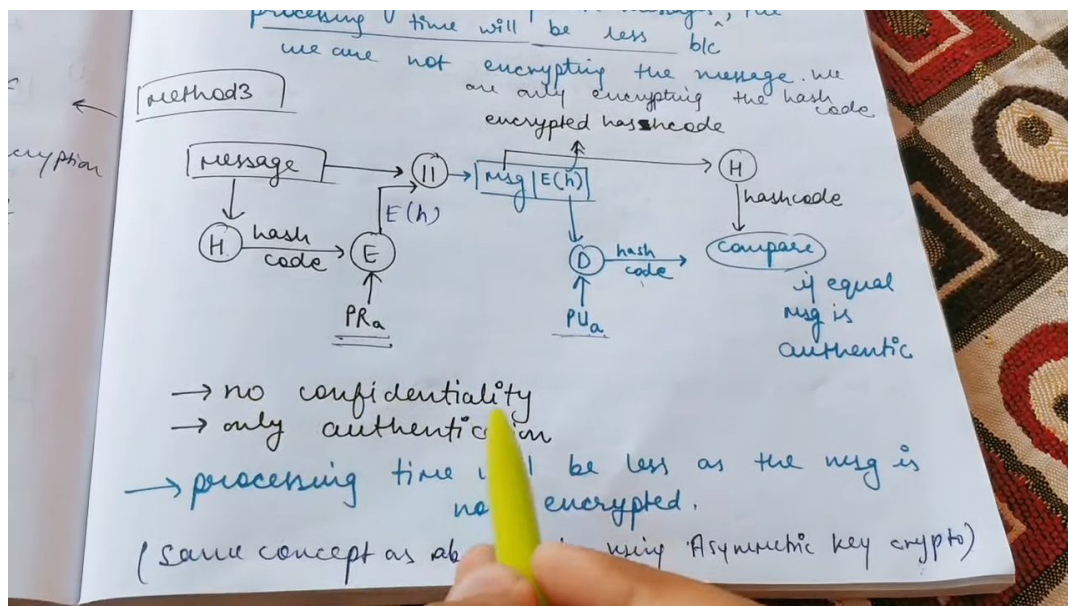 processing time will be less b/c
we are not encrypting the message. we
are only encrypting the hash
code
encrypted hashcode
cryption
Method3
Message
||
Msg | E(h)
H
hashcode
E(h)
H
hash
code
E
D
hash
code
compare
PRa
PUa
if equal
msg is
authentic
→ no confidentiality
→ only
→ processing time be less as the msg is
encrypted.
(same concept as using Asymmetric key crypto)